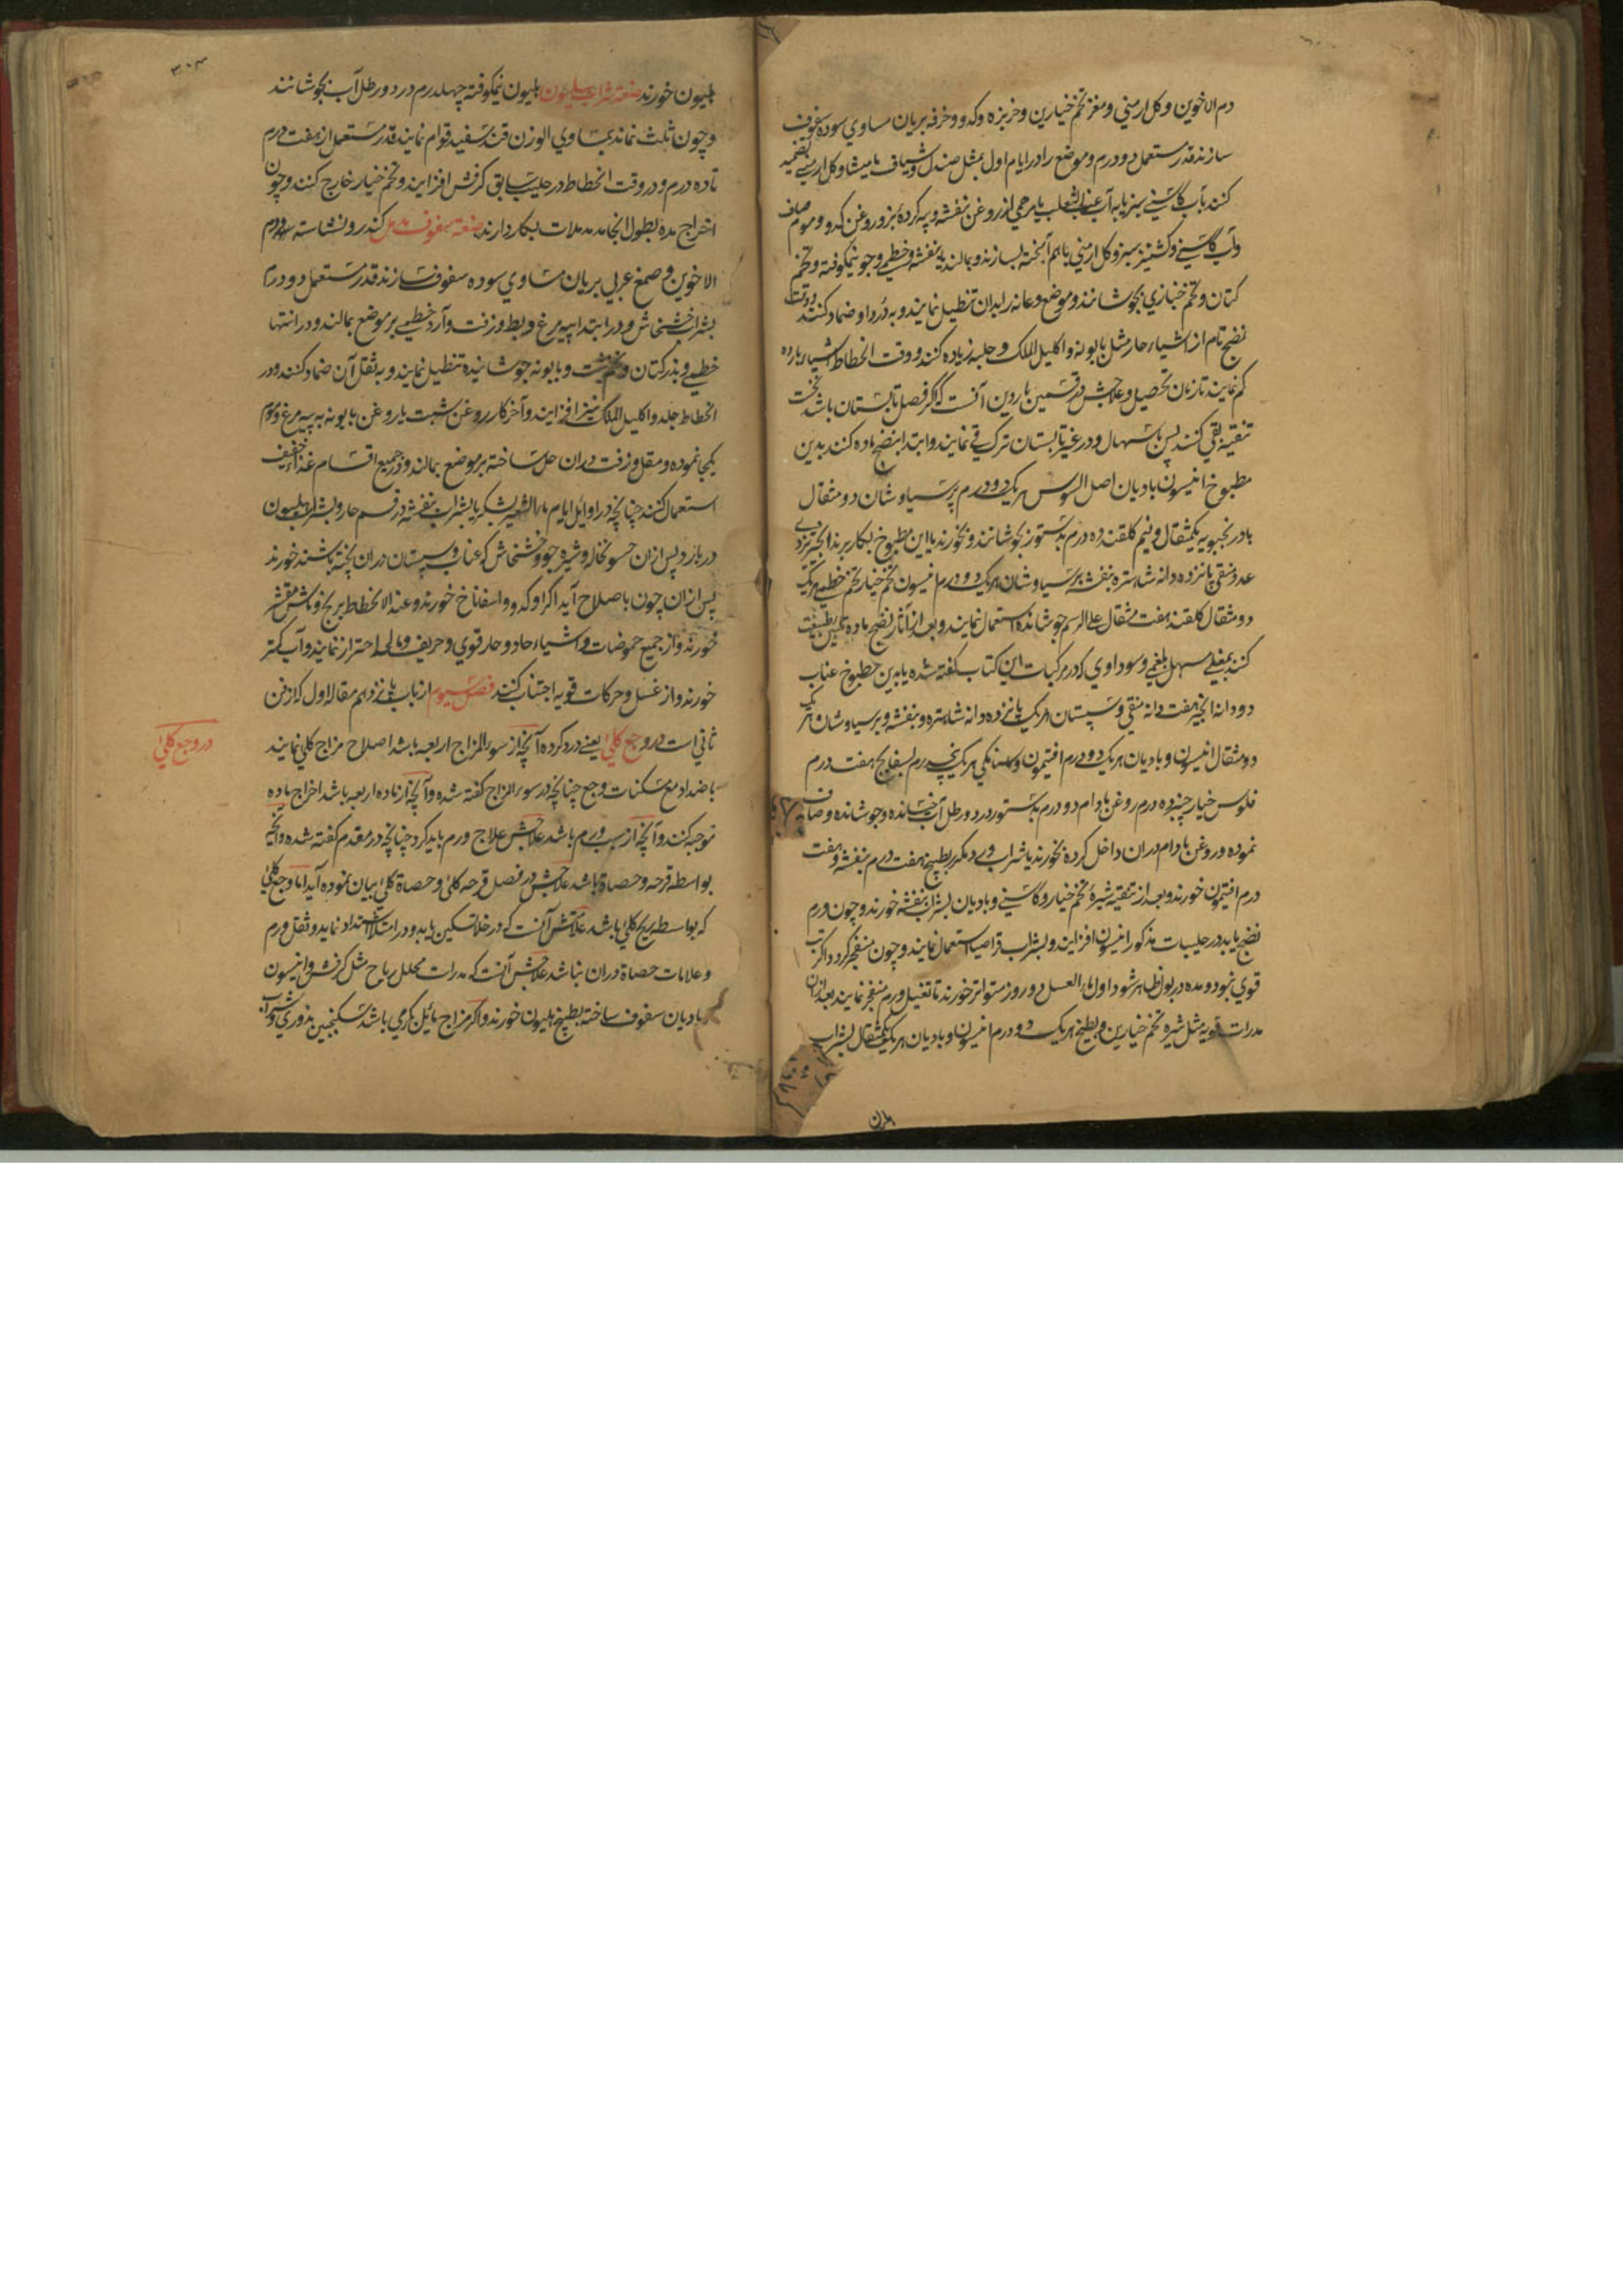 دم الاخوین و کل ارمنی و مغز تخم خیارین و خربزه و کدو و خرفه بریان مساوي سوده سفوف
سازند قدر مستعمل دو درم و موضع را در ایام اول بمثل صندل و شیاف مامیثا و کل ارمنی تضمید
کنند بآب کاسنی سبز یا به آب عنب الثعلب یا مرهمی از روغن بنفشه و پیه کرده بز و روغن کدو و موم صاف
و آب کاسنی و کشنیز سبز و کل ارمنی باهم آمیخته بسازند و بمالند یا بنفشه و خطمی و جو نیمکوفته و تخم
کتان و تخم خبازي بجوشانند و موضع و عانه را بدان تنطیل نمایند و به درد او ضماد کنند
نضج تام از اشیاء حار مثل بابونه و اکلیل الملک و حلبه زیاده کنند و وقت انحطاط اشیاء بارده
کم نمایند تا زمان تحصیل و علاجش در قسمین باردین آنست که اکر فصل تابستان باشد نخست
تنقیه بقي کنند پس باسهال و در غیر تابستان ترک قي نمایند و ابتدا بنضج ماده کنند بدین
مطبوخ انیسون بادیان اصل السوس هریک دو درم پرسیاوشان دو مثقال
بادرنجبویه یکمثقال و نیم کلقند ده درم بدستور بجوشانند و بخورند یا این مطبوخ بکار برند انجیر زرد
عدد منقی پانزده دانه شاهتره بنفشه پرسیاوشان هریک دو درم انیسون تخم خیار تخم خطمی هریک
دو مثقال کلقند هفت مثقال علی الرسم جوشانده استعمال نمایند و بعد از آثار نضج ماده تلیین طبیعت
کنند بمغلی مسهل بلغمی و سوداوي که در مرکبات این کتاب کفته شده یا بدین مطبوخ عناب
دو دانه انجیر هفت دانه منقی و سپستان هریک پانزده دانه شاهتره و بنفشه و پرسیاوشان هریک
دو مثقال انیسون و بادیان هریک دو درم افتیمون و سنامکی هریک پنجدرم بسفایج هفت درم
فلوس خیارچنبر ده درم روغن بادام دو درم بدستور در دو رطل آب خیسانده و جوشانده و صاف
نموده و روغن بادام دران داخل کرده بخورند یا شراب ورد مکرر بطبیخ هفت درم بنفشه و هفت
درم افتیمون خورند و بعد از تنقیه شیره تخم خیار و کاسنی و بادیان بشراب بنفشه خورند و چون ورم
نضج یابد در حلیبات مذکور انیسون افزایند و بشراب قراصیا استعمال نمایند و چون منفجر کردد اکر تب
قوي نبود و مده در بول ظاهر شود اول ماء العسل دو روز متواتر خورند تا تغسیل ورم منفجر نمایند بعد ازان
مدرات قویه مثل شیره تخم خیارین و بطیخ هریک دو درم انیسون و بادیان هریک یکمثقال بشراب
هلیون
۳۰۳
هلیون خورند صنعة شراب هلیون هلیون نیمکوفته چهلدرم در دو رطل آب بجوشانند
و چون ثلث نماند بمساوي الوزن قند سفید قوام نمایند قدر مستعمل از هفت درم
تا ده درم و در وقت انحطاط در حلیب سابق کرفس افزایند و تخم خیار خارج کنند و چون
اخراج مده بطول انجامد مدملات بکار دارند صنعة سفوف کندر و نشاسته و دم
الاخوین و صمغ عربي بریان مساوي سوده سفوف سازند قدر مستعمل دو درم
بشراب خشخاش و در ابتدا پیه مرغ و بط و زفت و آرد خطمی بر موضع بمالند و در انتها
خطمی و بذر کتان و تخم شبت و بابونه جوشانیده تنطیل نمایند و به ثفل آن ضماد کنند و در
انحطاط حلبه و اکلیل الملک نیز افزایند و آخر کار روغن شبت یا روغن بابونه به پیه مرغ و موم
یکجا نموده و مقل و زفت دران حل ساخته بر موضع بمالند و در جمیع اقسام غذاء خفیف
استعمال کنند چنانچه در اوایل ایام ماء الشعیر بشکر یا بشراب بنفشه در قسم حار و بشراب هلیون
در بارد پس ازان حسو نخاله و شیره جو و خشخاش که عناب و سپستان دران پخته باشند خورند
پس ازان چون باصلاح آید اکرا و کدو و اسفاناخ خورند و عند الانحطاط برنج و ماش مقشر
خورند و از جمیع حموضات و اشیاء حاد و حار قوي و حریف و مالح احتراز نمایند و آب کمتر
خورند و از غسل و حرکات قویه اجتناب کنند فصل سیوم از باب پانزدهم مقاله اول که از فن
ثاني است در وجع کلي یعنے درد کرده آنچه از سوء المزاج اربعه باشد اصلاح مزاج کلي نمایند
باضداد مع مسکنات وجع چنانچه در سوء المزاج کفته شده و آنچه از ماده اربعه باشد اخراج ماده
توجه کنند و آنچه از سبب ورم باشد علاجش علاج ورم باید کرد چنانچه در مقدم کفته شده و آنچه
بواسطه قرحه و حصاة باشد علاجش در فصل قرحه کلي و حصاة کلي بیان نموده آید اما وجع کلي
که بواسطه ریح کلي باشد علامتش آنست که در خلا تسکین یابد و در امتلا اشتداد نماید و ثقل ورم
و علامات حصاة دران نباشد علاجش آنست که مدرات محلل ریاح مثل کرفس و انیسون
و بادیان سفوف ساخته بطبیخ هلیون خورند و اکر مزاج مائل بکرمي باشد سکنجبین بذوري و شراب
در وجع کلي